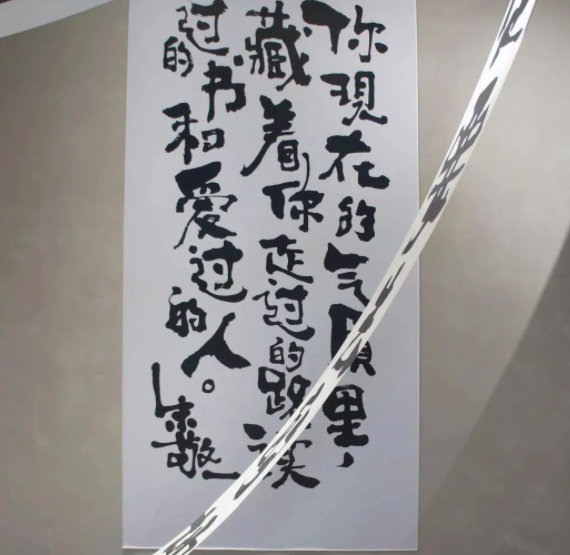 你現在的气質里，
藏着你走过的路读
过的书和爱过的人。
朱敬一